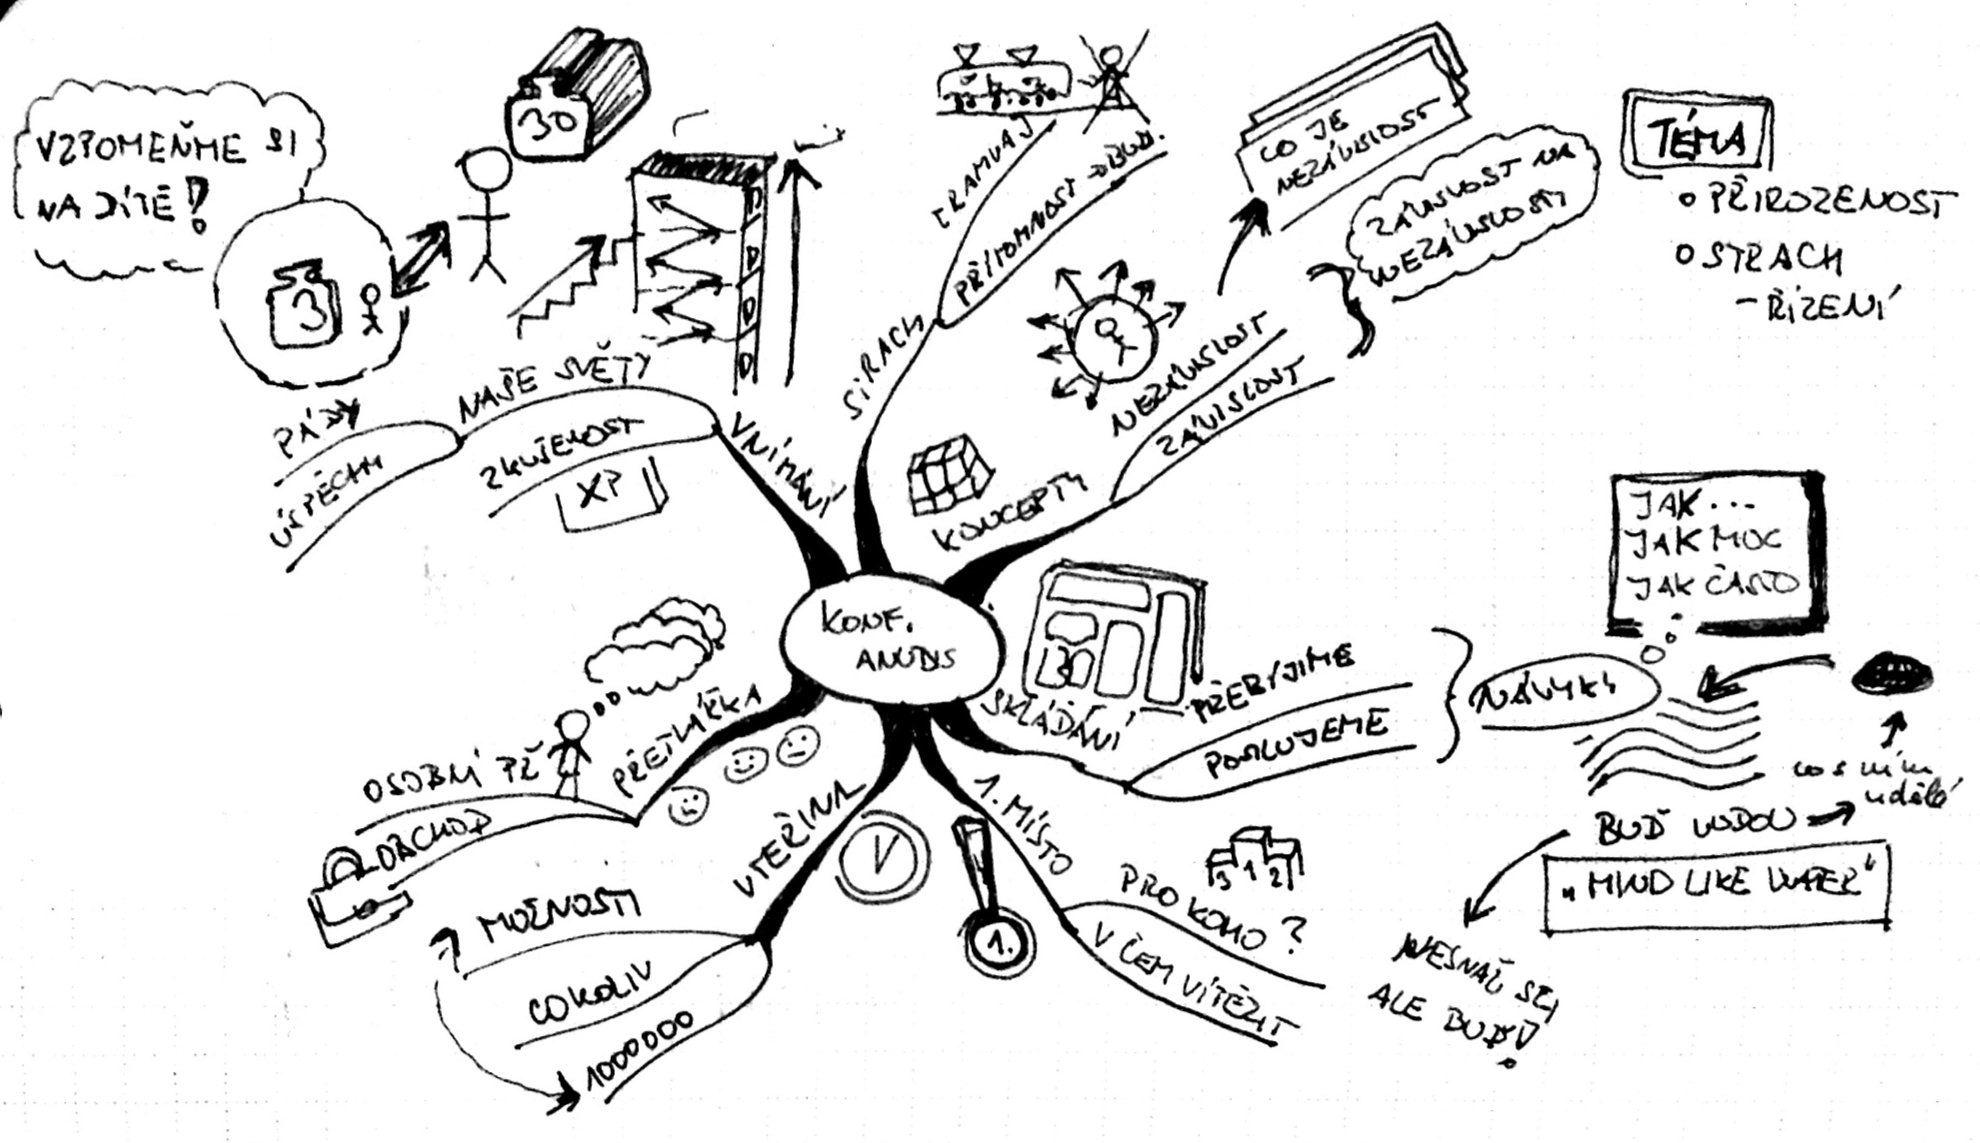 VZPOMEŇME SI
NA DÍTĚ!
3
30
D
D
D
D
PÁDY
ÚSPĚCHY
NAŠE SVĚTY
ZKUŠENOST
XP
VNÍMÁNÍ
STRACH
TRAMVAJ
PŘÍTOMNOST
KONCEPTY
NEZÁVISLOST
ZÁVISLOST
CO JE
NEZÁVISLOST
ZÁVISLOST NA
NEZÁVISLOSTI
TÉMA
PŘIROZENOST
STRACH
- ŘÍZENÍ
KONF.
ANUDIS
SKLÁDÁNÍ
PŘEBÍJÍME
POSILUJEME
NÁVYKY
JAK...
JAK MOC
JAK ČASTO
co s ním
udělá
BUĎ VODOU
„MIND LIKE WATER"
NESNAŽ SE,
ALE BUĎ!
1. MÍSTO
1.
3 1 2
PRO KOHO?
V ČEM VÍTĚZIT
VTEŘINA
MOŽNOSTI
COKOLIV
1000000
PŘETVÁŘKA
OSOBNÍ PŘ
OBCHOD